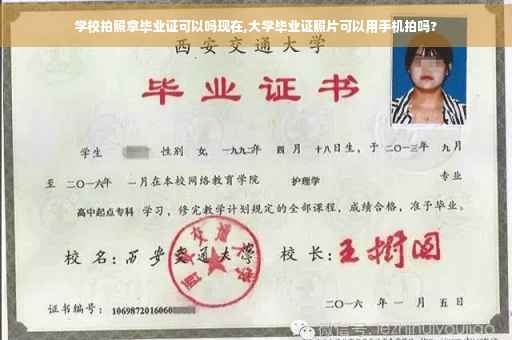 学校拍照拿毕业证可以吗现在,大学毕业证照片可以用手机拍吗?
西安交通大学
毕业证书
学生 性别 女, 一九九二年 四月 十八日生, 于 二〇一三年 九月
至 二〇一六年 一月在本校网络教育学院 护理学 专业
高中起点专科 学习, 修完教学计划规定的全部课程, 成绩合格, 准予毕业。
校名: 西安交通大学 校长: 王树国
西安交通大学
证书编号: 1069872016060
二〇一六 年 一 月 五 日
微信号: jiezhinuiyoujiao